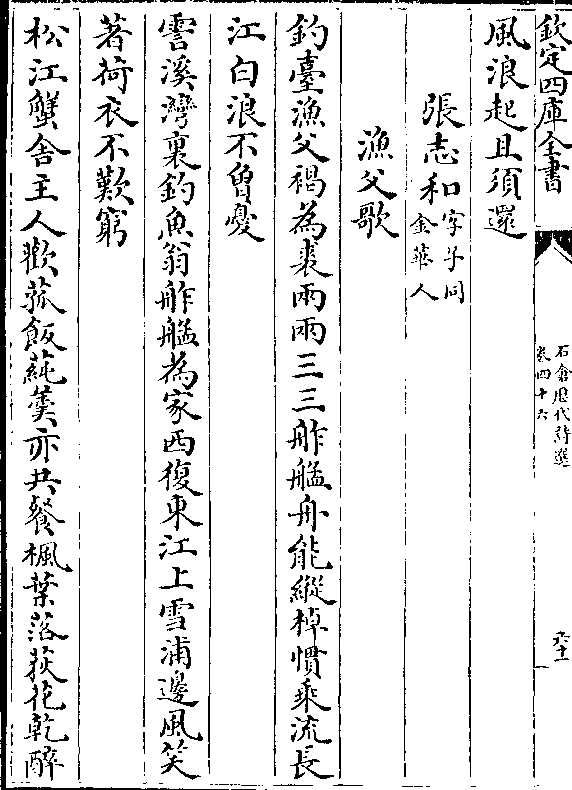 欽定四庫全書
石倉歷代詩選
卷四十六
六十一
風浪起且須還
張志和字子同
金華人
漁父歌
釣臺漁父褐為裘兩兩三三舴艋舟能縱棹慣乘流長
江白浪不曾憂
霅溪灣裏釣魚翁舴艋為家西復東江上雪浦邊風笑
著荷衣不歎窮
松江蟹舍主人歡菰飯蓴羹亦共餐楓葉落荻花乾醉